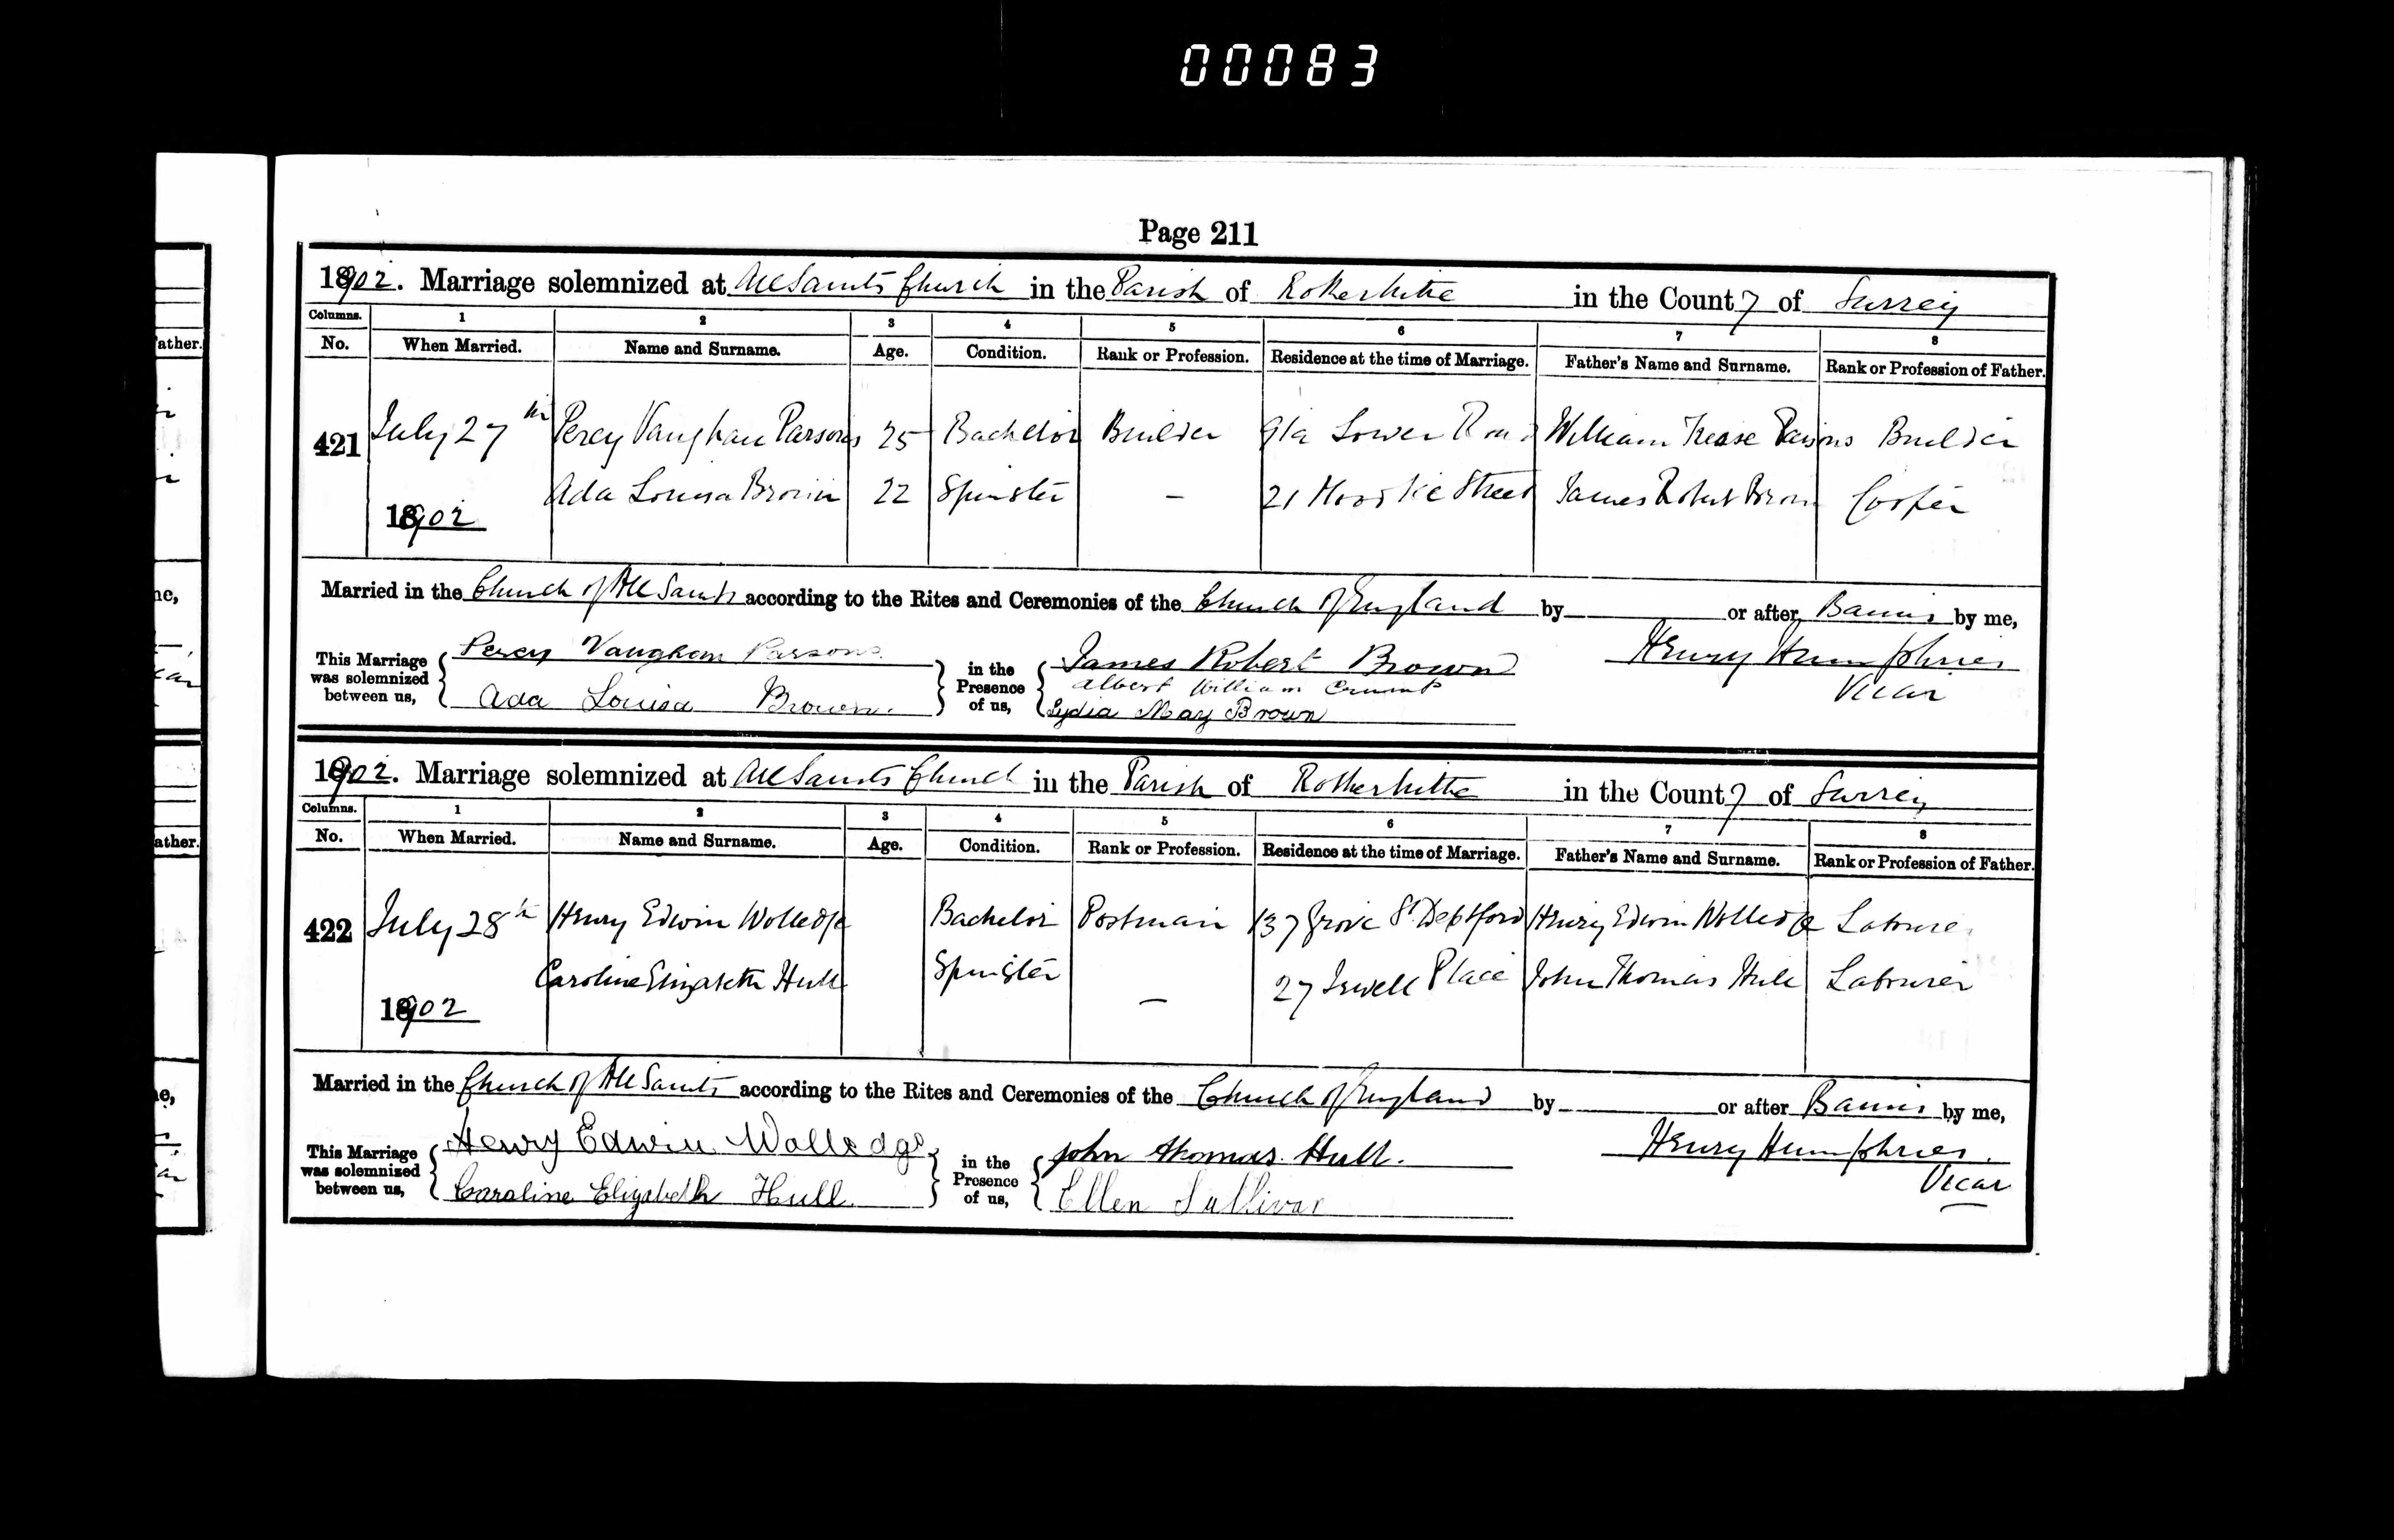 00083
Page 211
1902. Marriage solemnized at All Saints Church in the Parish of Rotherhithe in the County of Surrey
Columns. 1 2 3 4 5 6 7 8
No. When Married. Name and Surname. Age. Condition. Rank or Profession. Residence at the time of Marriage. Father's Name and Surname. Rank or Profession of Father.
421 July 27th Percy Vaughan Parsons 25 Bachelor Builder 91a Lower Road William Parsons Builder
1902 Ada Louisa Brown 22 Spinster – 21 Street James Robert Brown Cooper
Married in the Church of All Saints according to the Rites and Ceremonies of the Church of England by or after Banns by me,
This Marriage was solemnized between us, Percy Vaughan Parsons in the Presence of us, James Robert Brown Henry Humphries
Albert William Vicar
Ada Louisa Brown. Lydia May Brown
1902. Marriage solemnized at All Saints Church in the Parish of Rotherhithe in the County of Surrey
Columns. 1 2 3 4 5 6 7 8
No. When Married. Name and Surname. Age. Condition. Rank or Profession. Residence at the time of Marriage. Father's Name and Surname. Rank or Profession of Father.
422 July 28th Henry Edwin Wolledge Bachelor Postman 137 Grove St Deptford Henry Edwin Wolledge Labourer
1902 Caroline Elizabeth Hull Spinster – 27 Place John Thomas Hull Labourer
Married in the Church of All Saints according to the Rites and Ceremonies of the Church of England by or after Banns by me,
This Marriage was solemnized between us, Henry Edwin Wolledge in the Presence of us, John Thomas Hull. Henry Humphries.
Caroline Elizabeth Hull. Ellen Sullivan Vicar
ather.
ne,
ather.
e,